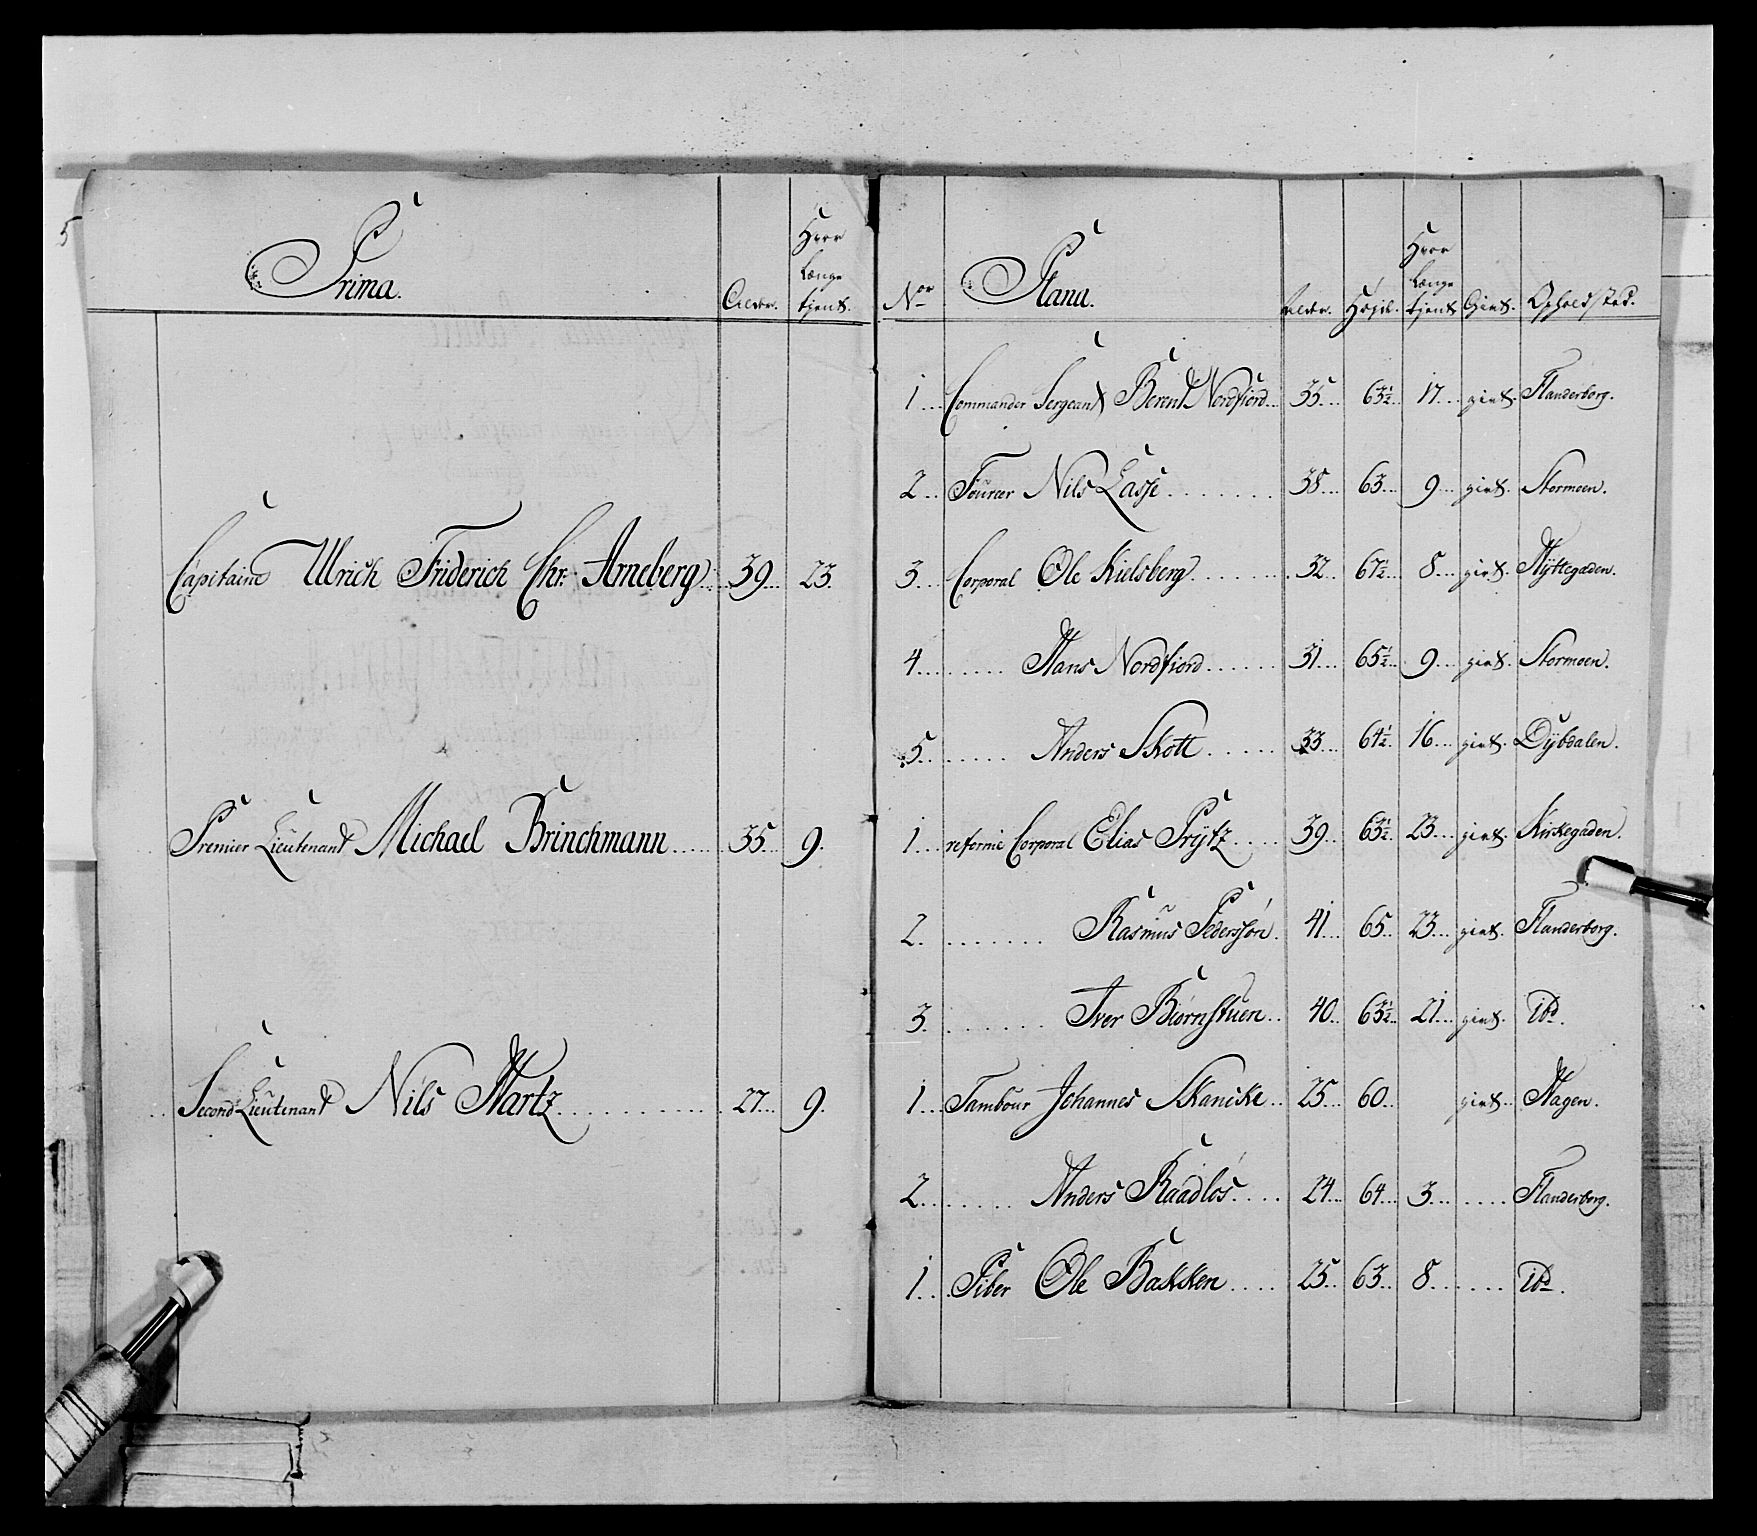 5
Prima. Alder. Hvor Længe tient.
Capitaine Ulrich Friderich Chr: Arneberg 39 23
Premier Lieutenant Michael Brinchmann 35 9.
Second Lieutenant Nils Hartz 27 9.
Nor Plana. Alder. Højde. Hvor Længe tient Givt. Opholdsted.
1 Commander Sergeant Berent Nordfiord 35 63½ 17 givt. Flanderborg.
2 Fourer Nils Lasse 38 63 9 givt. Stormoen.
3 Corporal Ole Kielsberg 32 67½ 8 givt. Hyttegaden.
4 Hans Nordfiord 31 65½ 9 givt. Stormoen.
5 Anders Skott 33 64½ 16 givt. Dybdalen.
1 reformé Corporal Elias Prytz 39 63½ 23 givt. Kirkegaden.
2. Rasmus Pedersøn 41 65 23 givt. Flanderborg.
3. Iver Biørnstuen 40 63½ 21 givt. ibd.
1 Tambour Johannes Skancke 25 60 givt. Hagen.
2 Anders Raadløs 24 64 3 Flanderborg.
1 Piber Ole Bakken 25 63 8 ibd.